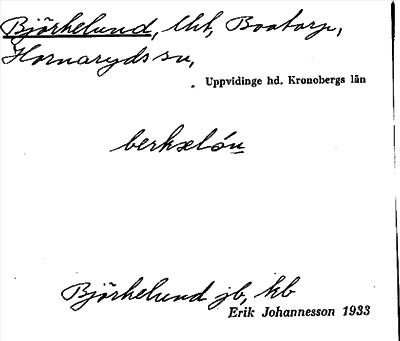 Björkelund, lht, Boatorp,
Hornaryds sn,
Uppvidinge hd. Kronobergs län
berkəlón
Björkelund jb, kb
Erik Johannesson 1933